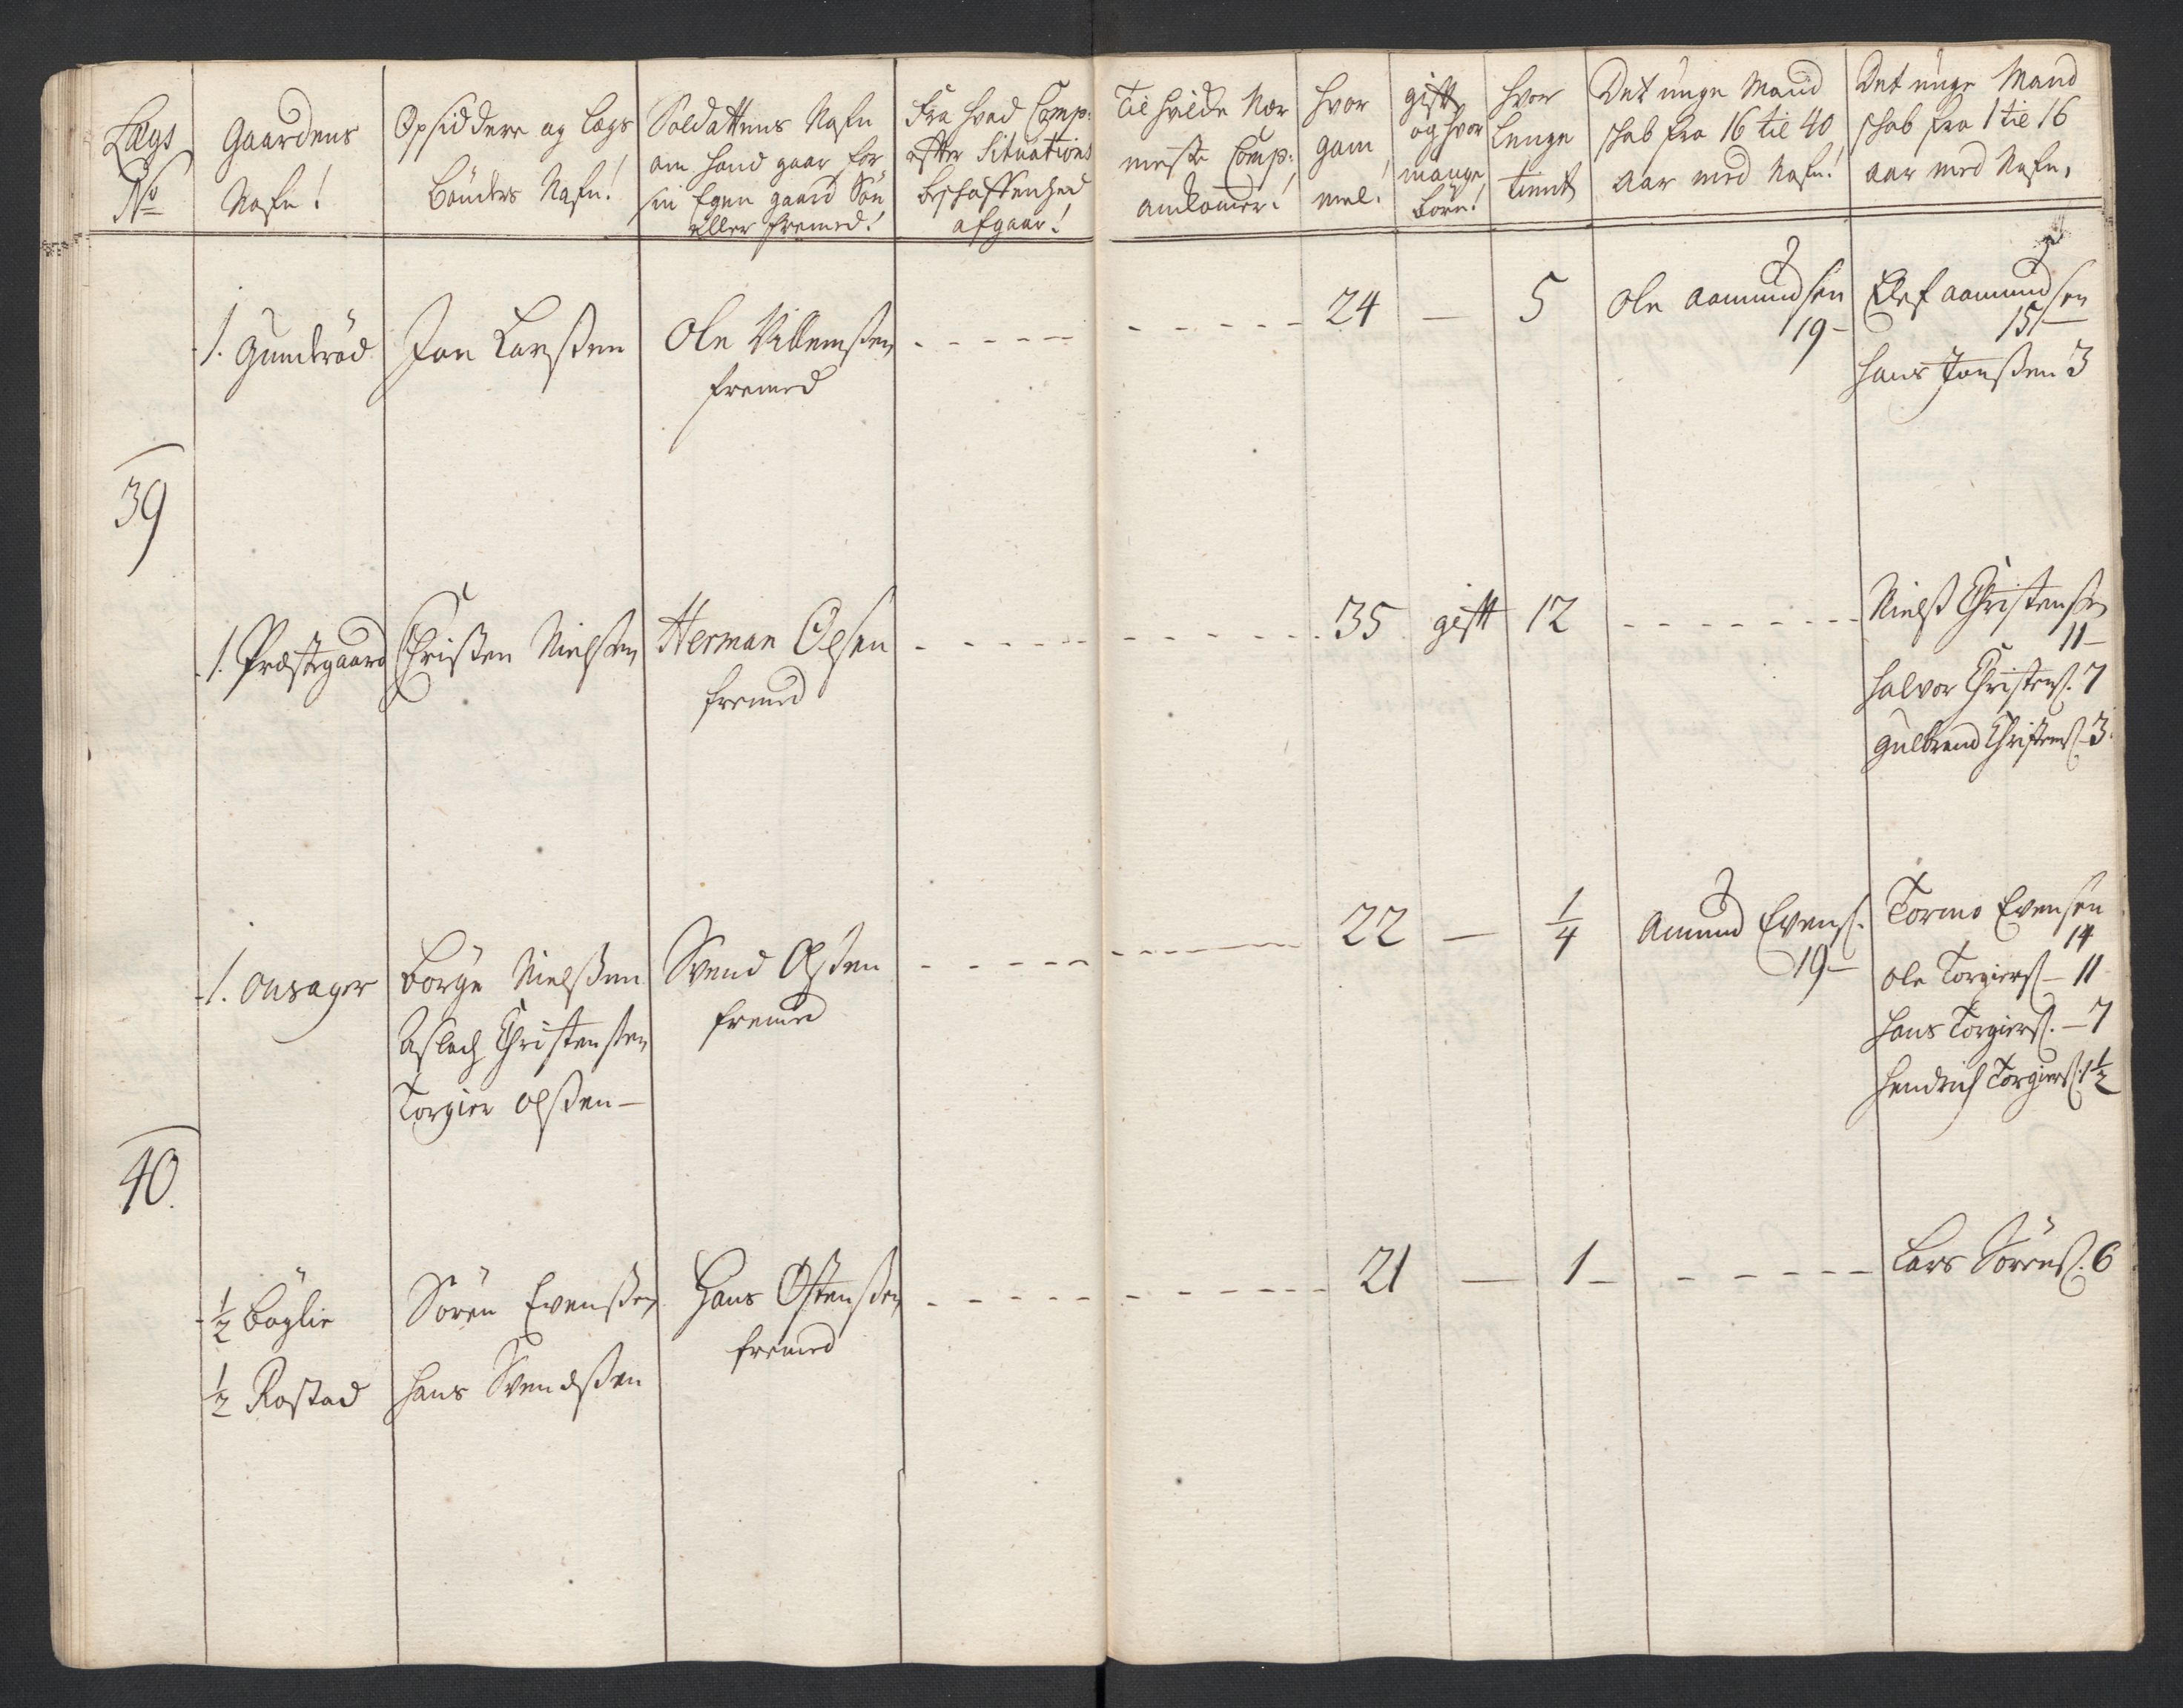 Lægs
No
Gaardens
Nafn!
Opsiddere og Lægs
Bönders Nafn!
Soldattens Nafn
om hand gaar for
sin Egen gaard Sön
eller fremed!
Fra hvad Comp:
efter Situations
beschaffenhed
afgaar!
Til hvilcke Nær
meste Comp:
ankomer!
hvor
gam
mel!
gift
og hvor
mange
born!
hvor
Lenge
tient
Det unge Mand
schab fra 16 til 40
aar med Nafn!
Det unge Mand
schab fra 1 til 16
aar med Nafn,
1. Gunderöd
Jon Larssen
Ole Villemssen
fremed
24 — 5
Ole Aamundsen
19 -
Elef Aamundsen
15 -
Hans Jonssen 3
39
1. Præstegaard
Christen Nielssen
Herman Olsen
fremed
35 gift 12
Nielss Christenssen
11 -
Halvor Christenss. 7
Gulbrand Christenss. 3
1. Onsager
Börge Nielssen
Aslach Christenssen
Torgier Olssen -
Svend Olssen
fremed
22 — 1/4
Amund Evenss.
19 -
Tormo Evensen
14
Ole Torgierss - 11
Hans Torgierss. - 7
Hendrich Torgierss. 1 1/2
40.
1/2 Böglie
1/2 Rostad
Sören Evenssen
Hans Svendssen
Hans Ostenssen
fremed
21 — 1 -
Lars Sörenss. 6